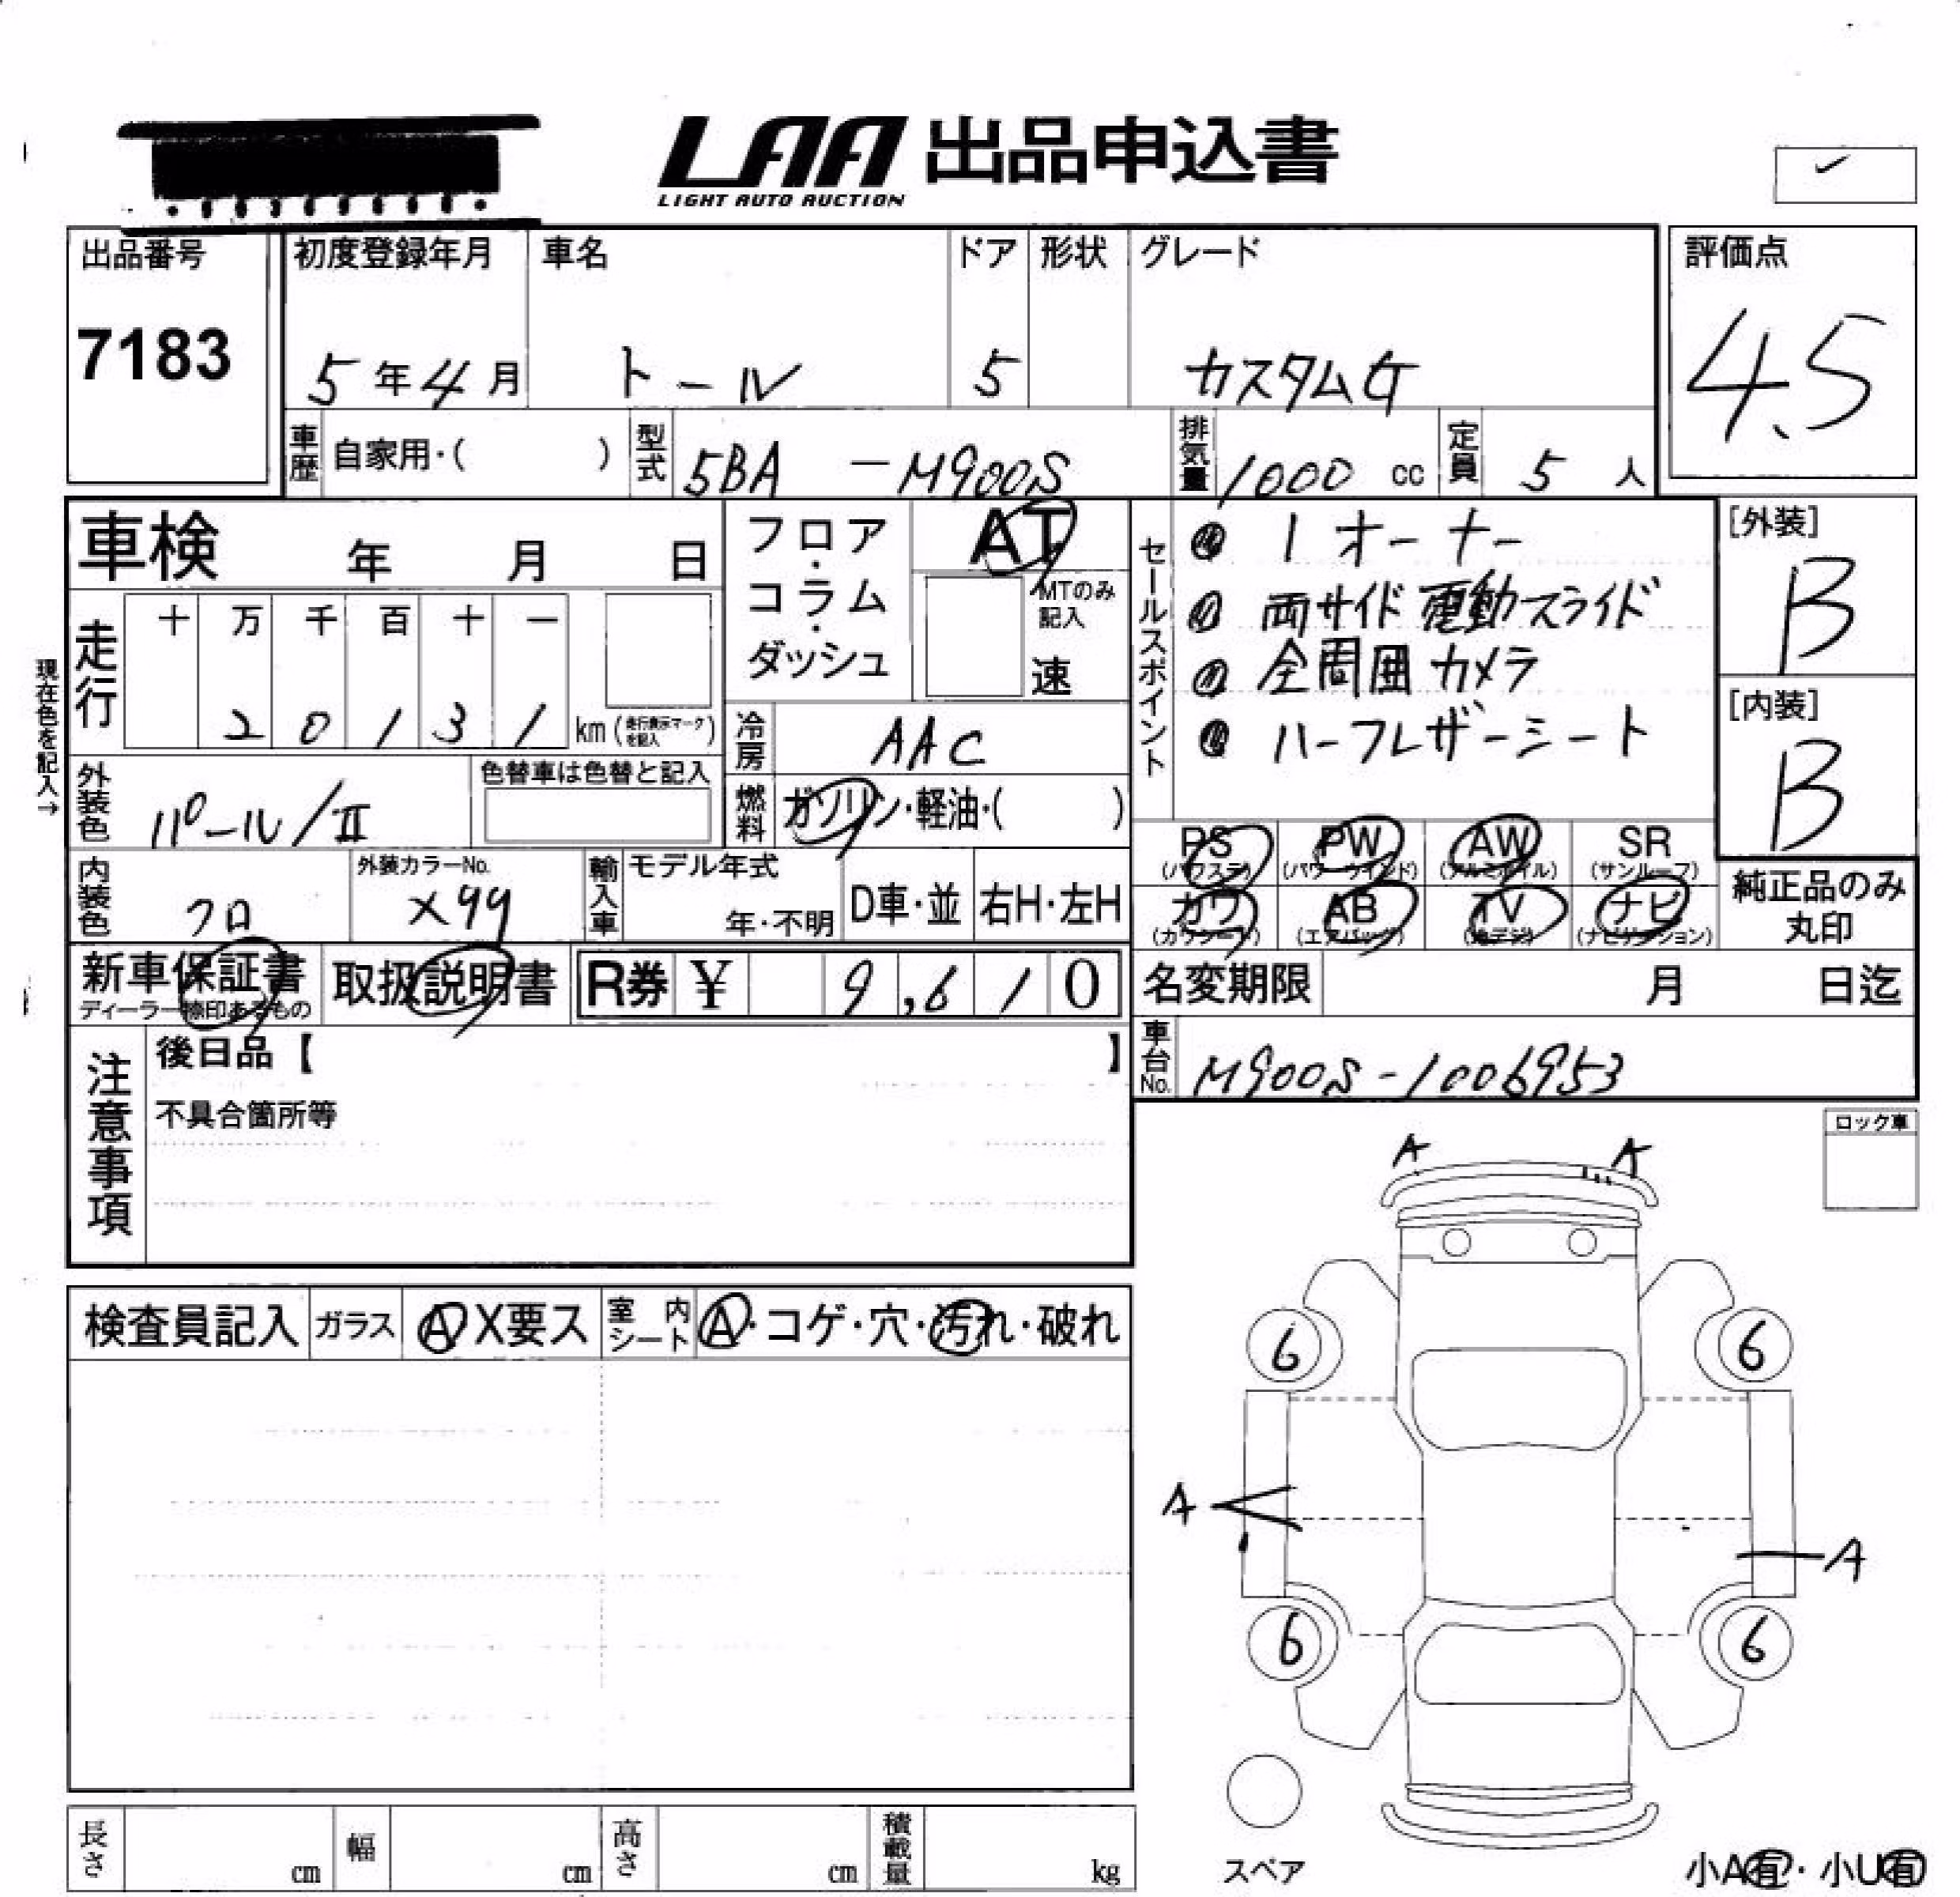 LAA 出品申込書
LIGHT AUTO AUCTION
出品番号
7183
初度登録年月
5年4月
車名
トール
ドア
5
形状
グレード
カスタムG
評価点
4.5
車歴
自家用・( )
型式
5BA -M900S
排気量
1000 cc
定員
5 人
車検 年 月 日
走行
十 万 千 百 十 一
2 0 1 3 1 km (走行表示マークを記入)
現在色を記入→
外装色
パール/II
色替車は色替と記入
内装色
クロ
外装カラーNo.
X99
フロア・コラム・ダッシュ
AT
MTのみ記入
速
冷房
AAC
燃料
ガソリン・軽油・( )
輸入車
モデル年式
年・不明
D車・並
右H・左H
セールスポイント
1オーナー
両サイド電動スライド
全周囲カメラ
ハーフレザーシート
[外装]
B
[内装]
B
PS (パワステ)
PW (パワーウインド)
AW (アルミホイル)
SR (サンルーフ)
カワ (カワシート)
AB (エアバッグ)
TV (地デジ)
ナビ (ナビゲーション)
純正品のみ丸印
新車保証書
ディーラー捺印あるもの
取扱説明書
R券 ¥ 9,610
名変期限 月 日迄
車台No.
M900S-1006953
注意事項
後日品【 】
不具合箇所等
ロック車
A
A
6
6
A
A
6
6
スペア
小A有・小U有
検査員記入
ガラス
A X要ス
室内シート
A・コゲ・穴・汚れ・破れ
長さ cm
幅 cm
高さ cm
積載量 kg